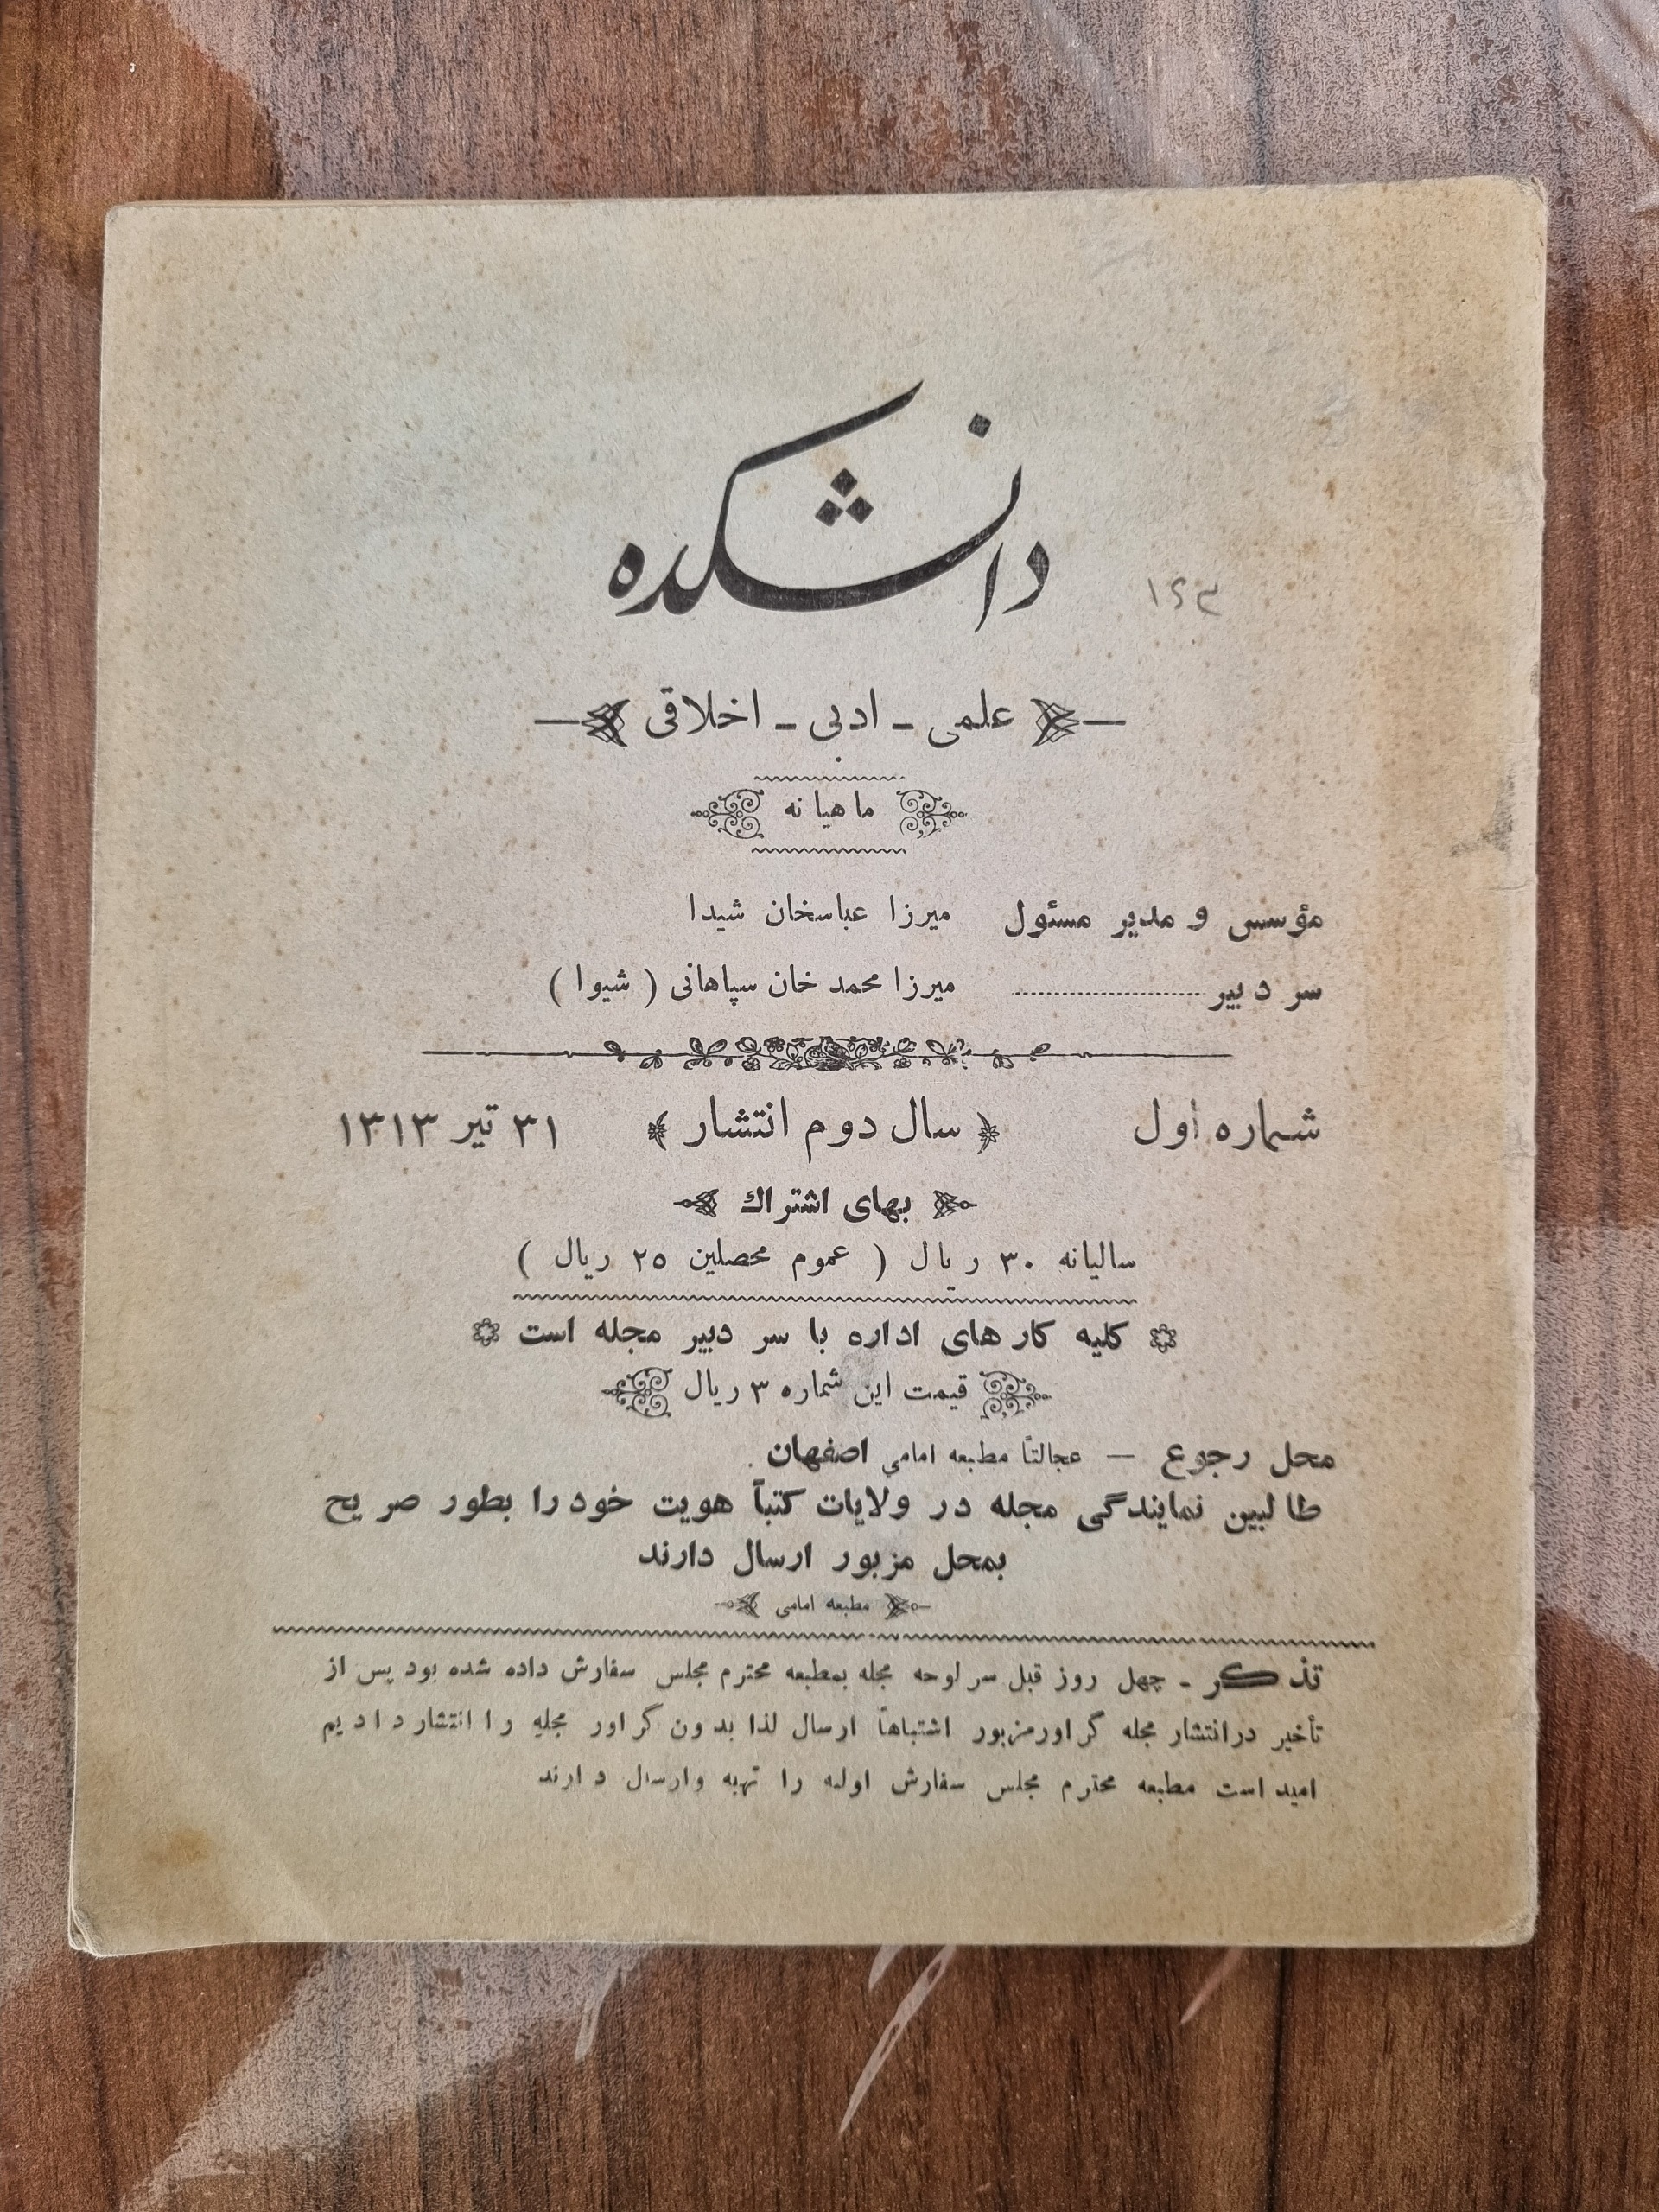 دانشکده
علمی ـ ادبی ـ اخلاقی
ماهیانه
مؤسس و مدیر مسئول میرزا عباسخان شیدا
سر دبیر ........................ میرزا محمد خان سپاهانی ( شیوا )
شماره اول ﴿ سال دوم انتشار ﴾ ۳۱ تیر ۱۳۱۳
بهای اشتراك
سالیانه ۳۰ ریال ( عموم محصلین ۲۵ ریال )
کلیه کارهای اداره با سر دبیر مجله است
قیمت این شماره ۳ ریال
محل رجوع — عجالتاً مطبعه امامی اصفهان
طالبین نمایندگی مجله در ولایات کتباً هویت خود را بطور صریح
بمحل مزبور ارسال دارند
مطبعه امامی
تذکر ـ چهل روز قبل سر لوحه مجله بمطبعه محترم مجلس سفارش داده شده بود پس از
تأخیر در انتشار مجله گراور مزبور اشتباهاً ارسال لذا بدون گراور مجله را انتشار دادیم
امید است مطبعه محترم مجلس سفارش اولیه را تهیه و ارسال دارند